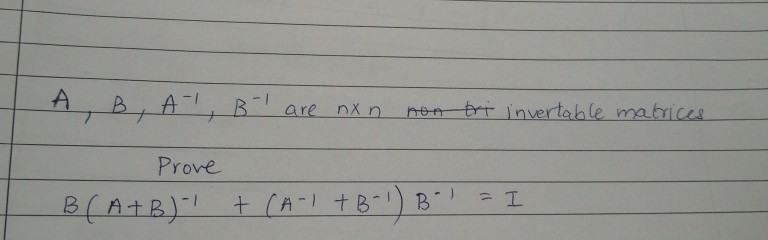 A, B, A⁻¹, B⁻¹ are n×n ~~non tri~~ invertable matrices
Prove
B(A+B)⁻¹ + (A⁻¹ + B⁻¹) B⁻¹ = I